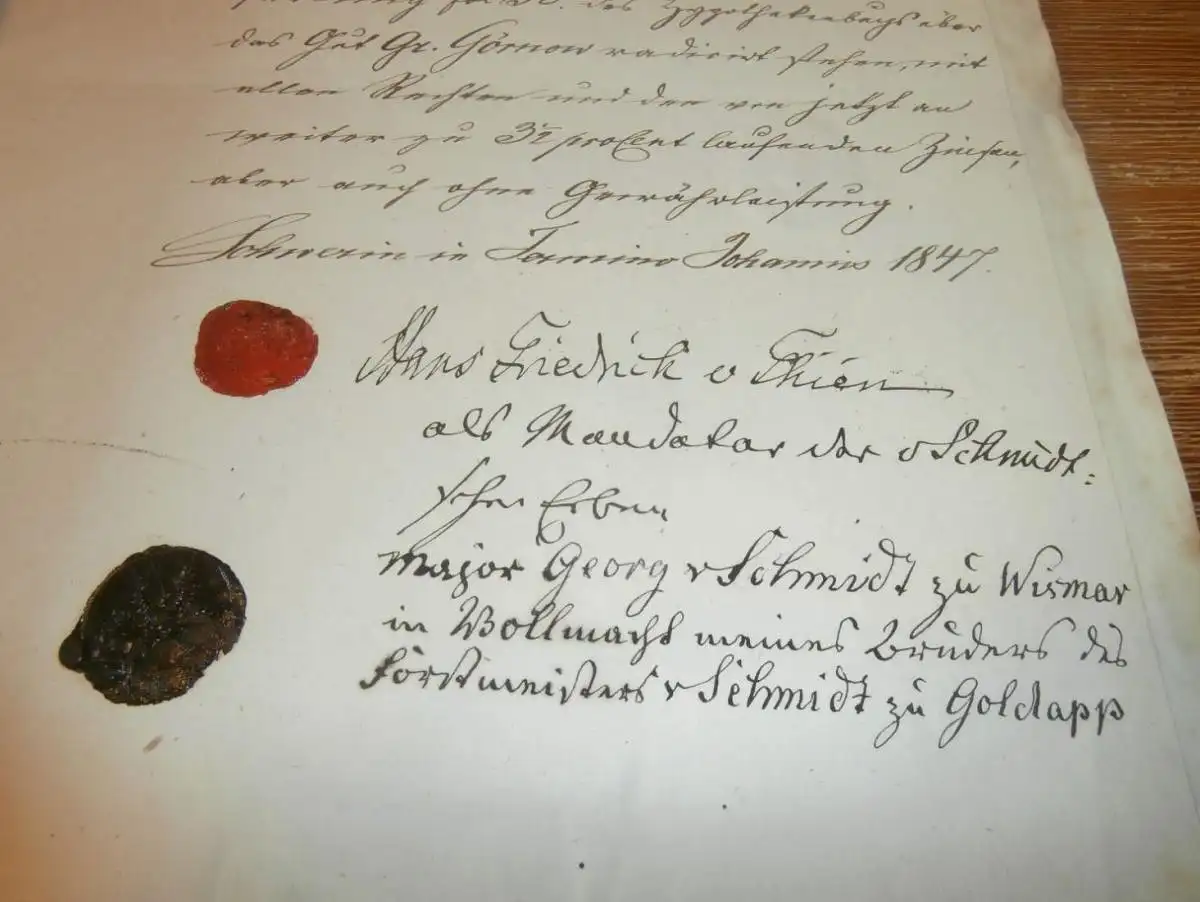 des Hypothekenbuchs über
das Gut Gr. Görnow radicirt stehen, mit
allen Rechten und den von jetzt an
weiter zu 3½ procent laufenden Zinsen,
aber auch ohne Gewährleistung.
Schwerin in Termino Johannis 1847.
Hans Friedrich v Thien
als Mandatar der v Schmidt:
schen Erben
major Georg v Schmidt zu Wismar
in Vollmacht meines Bruders des
Forstmeisters v Schmidt zu Goldapp